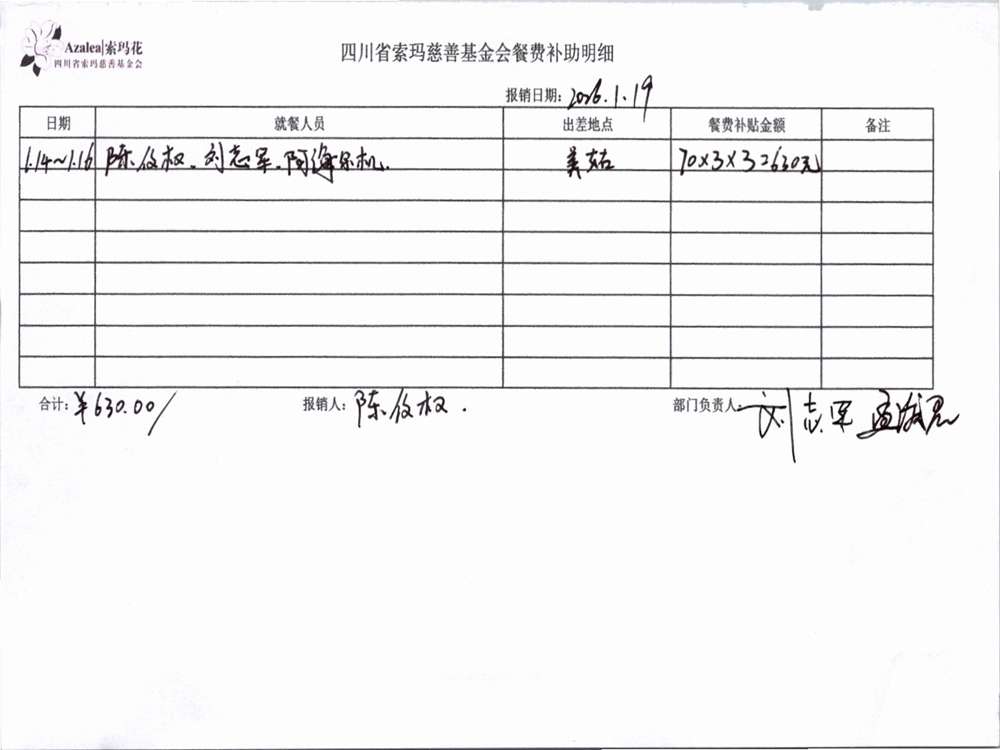 Azalea|索玛花
四川省索玛慈善基金会
四川省索玛慈善基金会餐费补助明细
报销日期: 2026.1.19
日期 就餐人员 出差地点 餐费补贴金额 备注
1.14~1.16 陈仅权、刘志军、阿海尔机. 美姑 70×3×3=630元
合计: ¥630.00/ 报销人: 陈仅权. 部门负责人: 刘志军